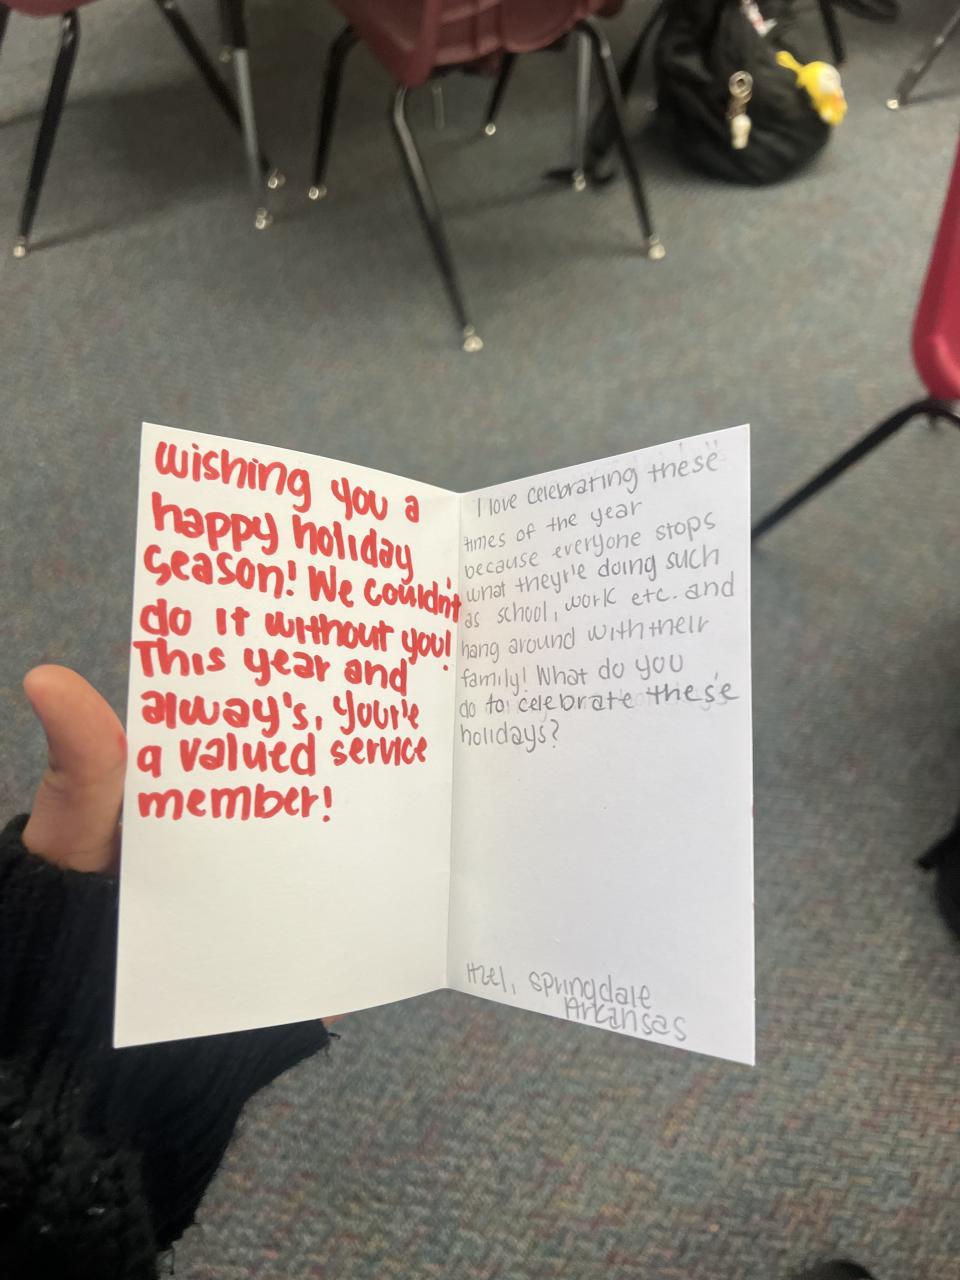 wishing you a
happy holiday
season! We couldn't
do it without you!
This year and
alway's, your'e
a valued service
member!
I love celebrating these
times of the year
because everyone stops
what theyr'e doing such
as school, work etc. and
hang around with their
family! What do you
do to celebrate these
holidays?
Springdale
Arkansas